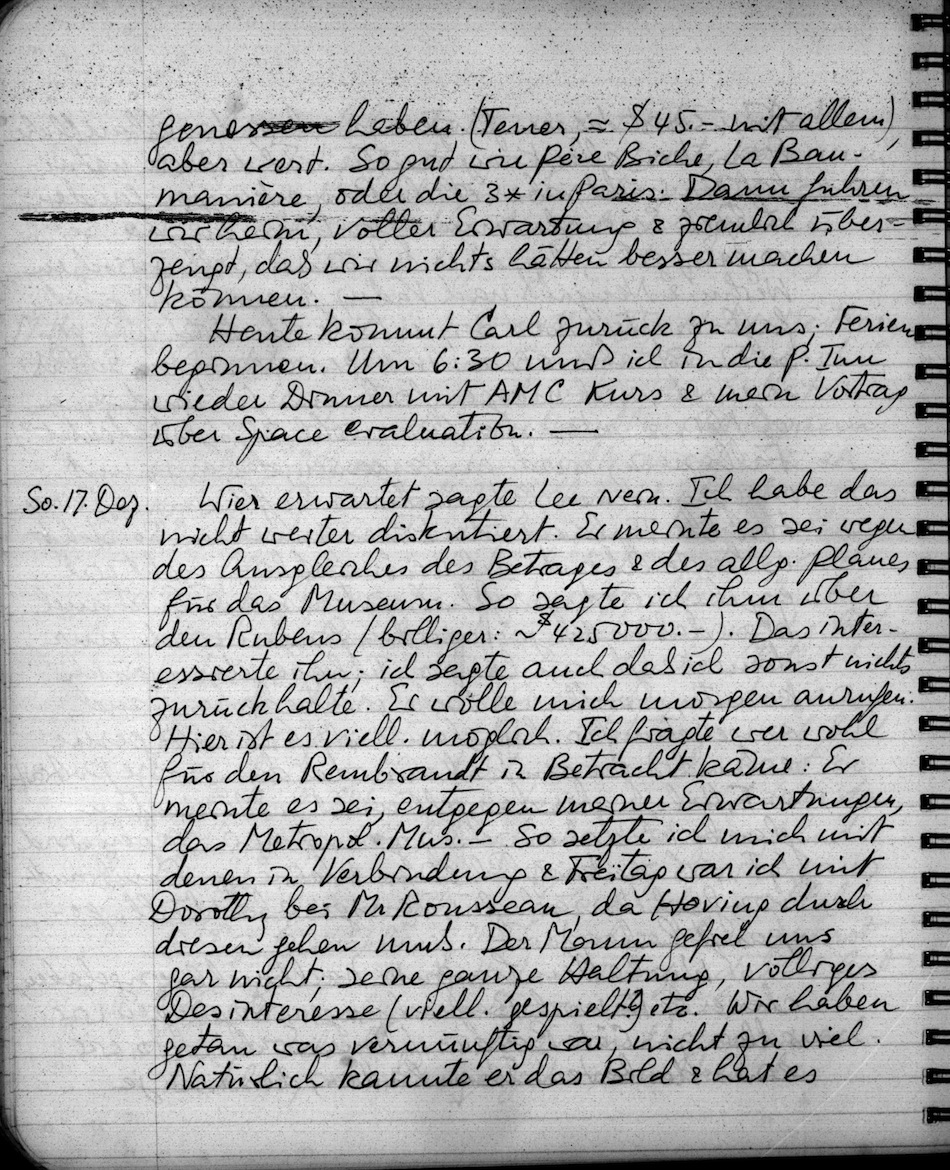 genossen haben. (Teuer, ≈ $45.- mit allem),
aber wert. So gut wie Père Biche, La Bau-
manière, oder die 3* in Paris. Dann fuhren
wir heim, voller Erwartung & ziemlich über-
zeugt, daß wir nichts hätten besser machen
können. —
Heute kommt Carl zurück zu uns; Ferien
beginnen. Um 6:30 muß ich in die P. Inn
wieder Dinner mit AMC Kurs & mein Vortrag
über Space evaluation. —
So. 17. Dez. Wier erwartet sagte Lee nein. Ich habe das
nicht weiter diskutiert. Er meinte es sei wegen
des Ausgleiches des Betrages & des allg. Planes
für das Museum. So sagte ich ihm über
den Rubens (billiger: ~$425000.-). Das inter-
essierte ihn; ich sagte auch daß ich sonst nichts
zurückhalte. Er wolle mich morgen anrufen.
Hier ist es viell. möglich. Ich fragte wer wohl
für den Rembrandt in Betracht käme: Er
meinte es sei, entgegen meiner Erwartungen,
das Metropol. Mus. — So setzte ich mich mit
denen in Verbindung & Freitag war ich mit
Dorothy bei Mr Rousseau, da Hoving durch
diesen gehen muß. Der Mann gefiel uns
gar nicht; seine ganze Haltung, völliges
Desinteresse (viell. gespielt!) etc. Wir haben
getan was vernünftig war, nicht zu viel.
Natürlich kannte er das Bild & hat es